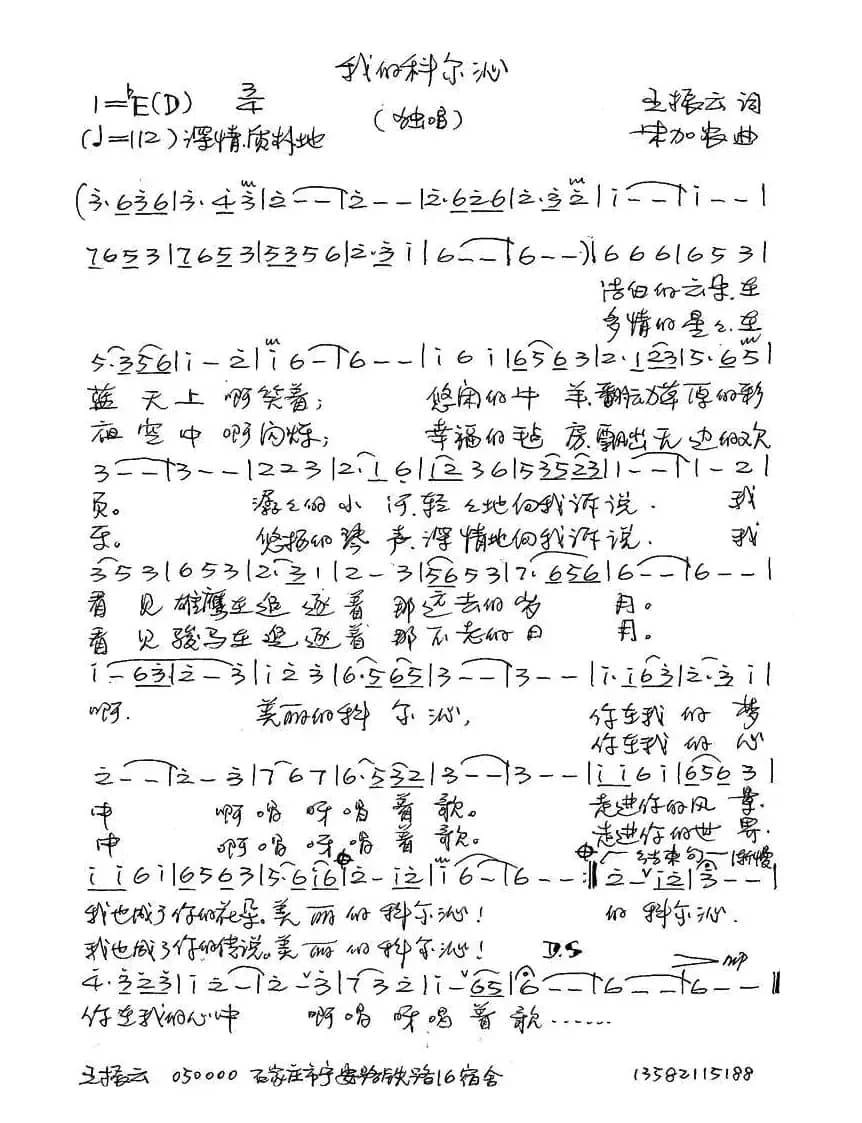 我的科尔沁
1=♭E(D) 3/4
(独唱)
王振云词
(♩=112)深情.质朴地
宋加农曲
(3·636|3·43|2--|2--|2·626|2·32|i--|i--|
7653|7653|5356|2·3i|6--|6--)|666|653|
洁白的云朵.在
多情的星星.在
5·356|i-2|i6-|6--|i6i|6563|2·123|5·65|
蓝天上啊笑着; 悠闲的牛羊.翻动草原的彩
夜空中啊闪烁; 幸福的毡房.飘出无边的欢
3--|3--|223|2·i6|i236|535231|1--|1-2|
页。 潺潺的小河.轻轻地向我诉说. 我
乐。 悠扬的琴声.深情地向我诉说. 我
353|653|2·31|2-3|5653|7·656|6--|6--|
看见雄鹰在追逐着那远去的岁月。
看见骏马在追逐着那不老的日月。
i-63|2-3|i23|6·565|3--|3--|i·i63|2·3i|
啊. 美丽的科尔沁, 你在我的梦
你在我的心
2--|2-3|767|6·532|3--|3--|ii6i|6563|
中 啊唱呀唱着歌。 走进你的风景.
中 啊唱呀唱着歌。 走进你的世界.
结束句 渐慢
ii6i|6563|5·6i6|2-i2|i6-|6--:‖2-i2|3--|
我也成了你的花朵。美丽的科尔沁! 的科尔沁.
我也成了你的传说。美丽的科尔沁! D.S
mp
4·323|i2-|2-3|732|i-65|6--|6--|6--‖
你在我的心中 啊唱呀唱着歌……
王振云 050000 石家庄市宁安路铁路16宿舍 13582115188